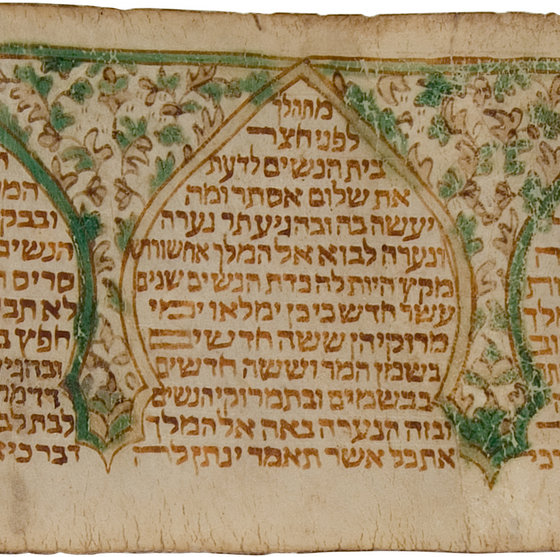 מתהלך
לפני חצר
בית הנשים לדעת
את שלום אסתר ומה
יעשה בה ובהגיע תר נערה
ונערה לבוא אל המלך אחשורוש
מקץ היות לה כדת הנשים שנים
עשר חדש כי כן ימלאו ימי
מרוקיהן ששה חדשים
בשמן המר וששה חדשים
בבשמים ובתמרוקי הנשים
ובזה הנערה באה אל המלך
את כל אשר תאמר ינתן לה
ובבק
הנשים
סריס ה
לא תב
חפץ ב
ובהגי
דד מר
לבת לב
דבר כי א